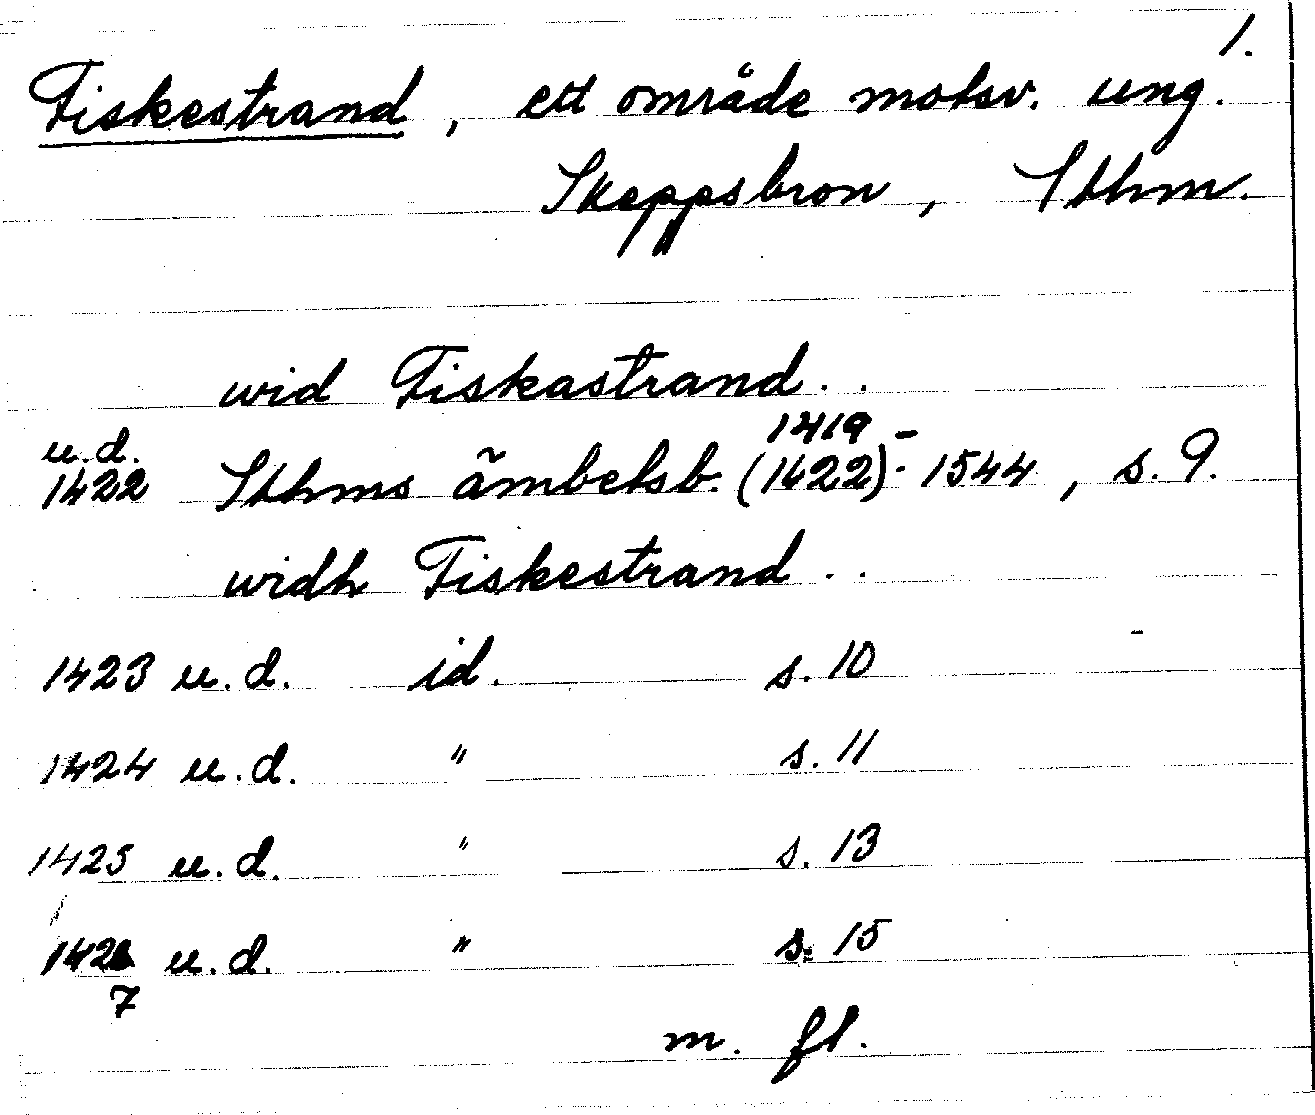 1.
Fiskestrand, ett område motsv. ung.
Skeppsbron, Sthm.
wid Fiskastrand. .
u.d. 1419 -
1422 Sthms ämbetsb. (1422) - 1544, s. 9.
widh Fiskestrand . .
1423 u.d. id. s. 10
1424 u.d. " s. 11
1425 u.d. " s. 13
142 u.d. " s. 15
7
m. fl.